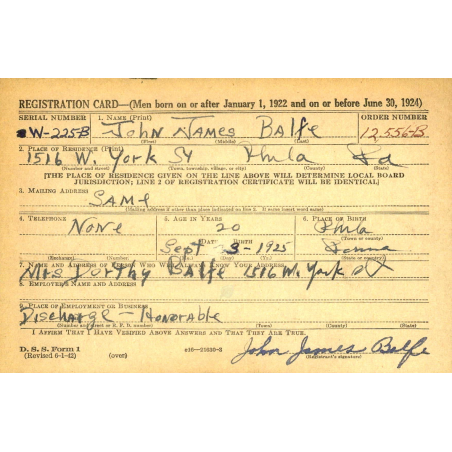 REGISTRATION CARD—(Men born on or after January 1, 1922 and on or before June 30, 1924)
SERIAL NUMBER 1. NAME (Print) ORDER NUMBER
W-225-B John James Balfe 12,556-B
(First) (Middle) (Last)
2. PLACE OF RESIDENCE (Print)
1516 W. York St Phila Pa
(Number and street) (Town, township, village, or city) (County) (State)
[THE PLACE OF RESIDENCE GIVEN ON THE LINE ABOVE WILL DETERMINE LOCAL BOARD
JURISDICTION; LINE 2 OF REGISTRATION CERTIFICATE WILL BE IDENTICAL]
3. MAILING ADDRESS
SAME
[Mailing address if other than place indicated on line 2. If same insert word same]
4. TELEPHONE 5. AGE IN YEARS 6. PLACE OF BIRTH
NONE 20 Phila
DATE OF BIRTH (Town or county)
Sept 3-1925 Penna
(Exchange) (Number) (Mo.) (Day) (Yr.) (State or country)
7. NAME AND ADDRESS OF PERSON WHO WILL ALWAYS KNOW YOUR ADDRESS
Mrs Dorthy Balfe 1516 W. York St
8. EMPLOYER'S NAME AND ADDRESS
9. PLACE OF EMPLOYMENT OR BUSINESS
Discharge - Honorable
(Number and street or R. F. D. number) (Town) (County) (State)
I AFFIRM THAT I HAVE VERIFIED ABOVE ANSWERS AND THAT THEY ARE TRUE.
D. S. S. Form 1
(Revised 6-1-42) (over) John James Balfe
(Registrant's signature)